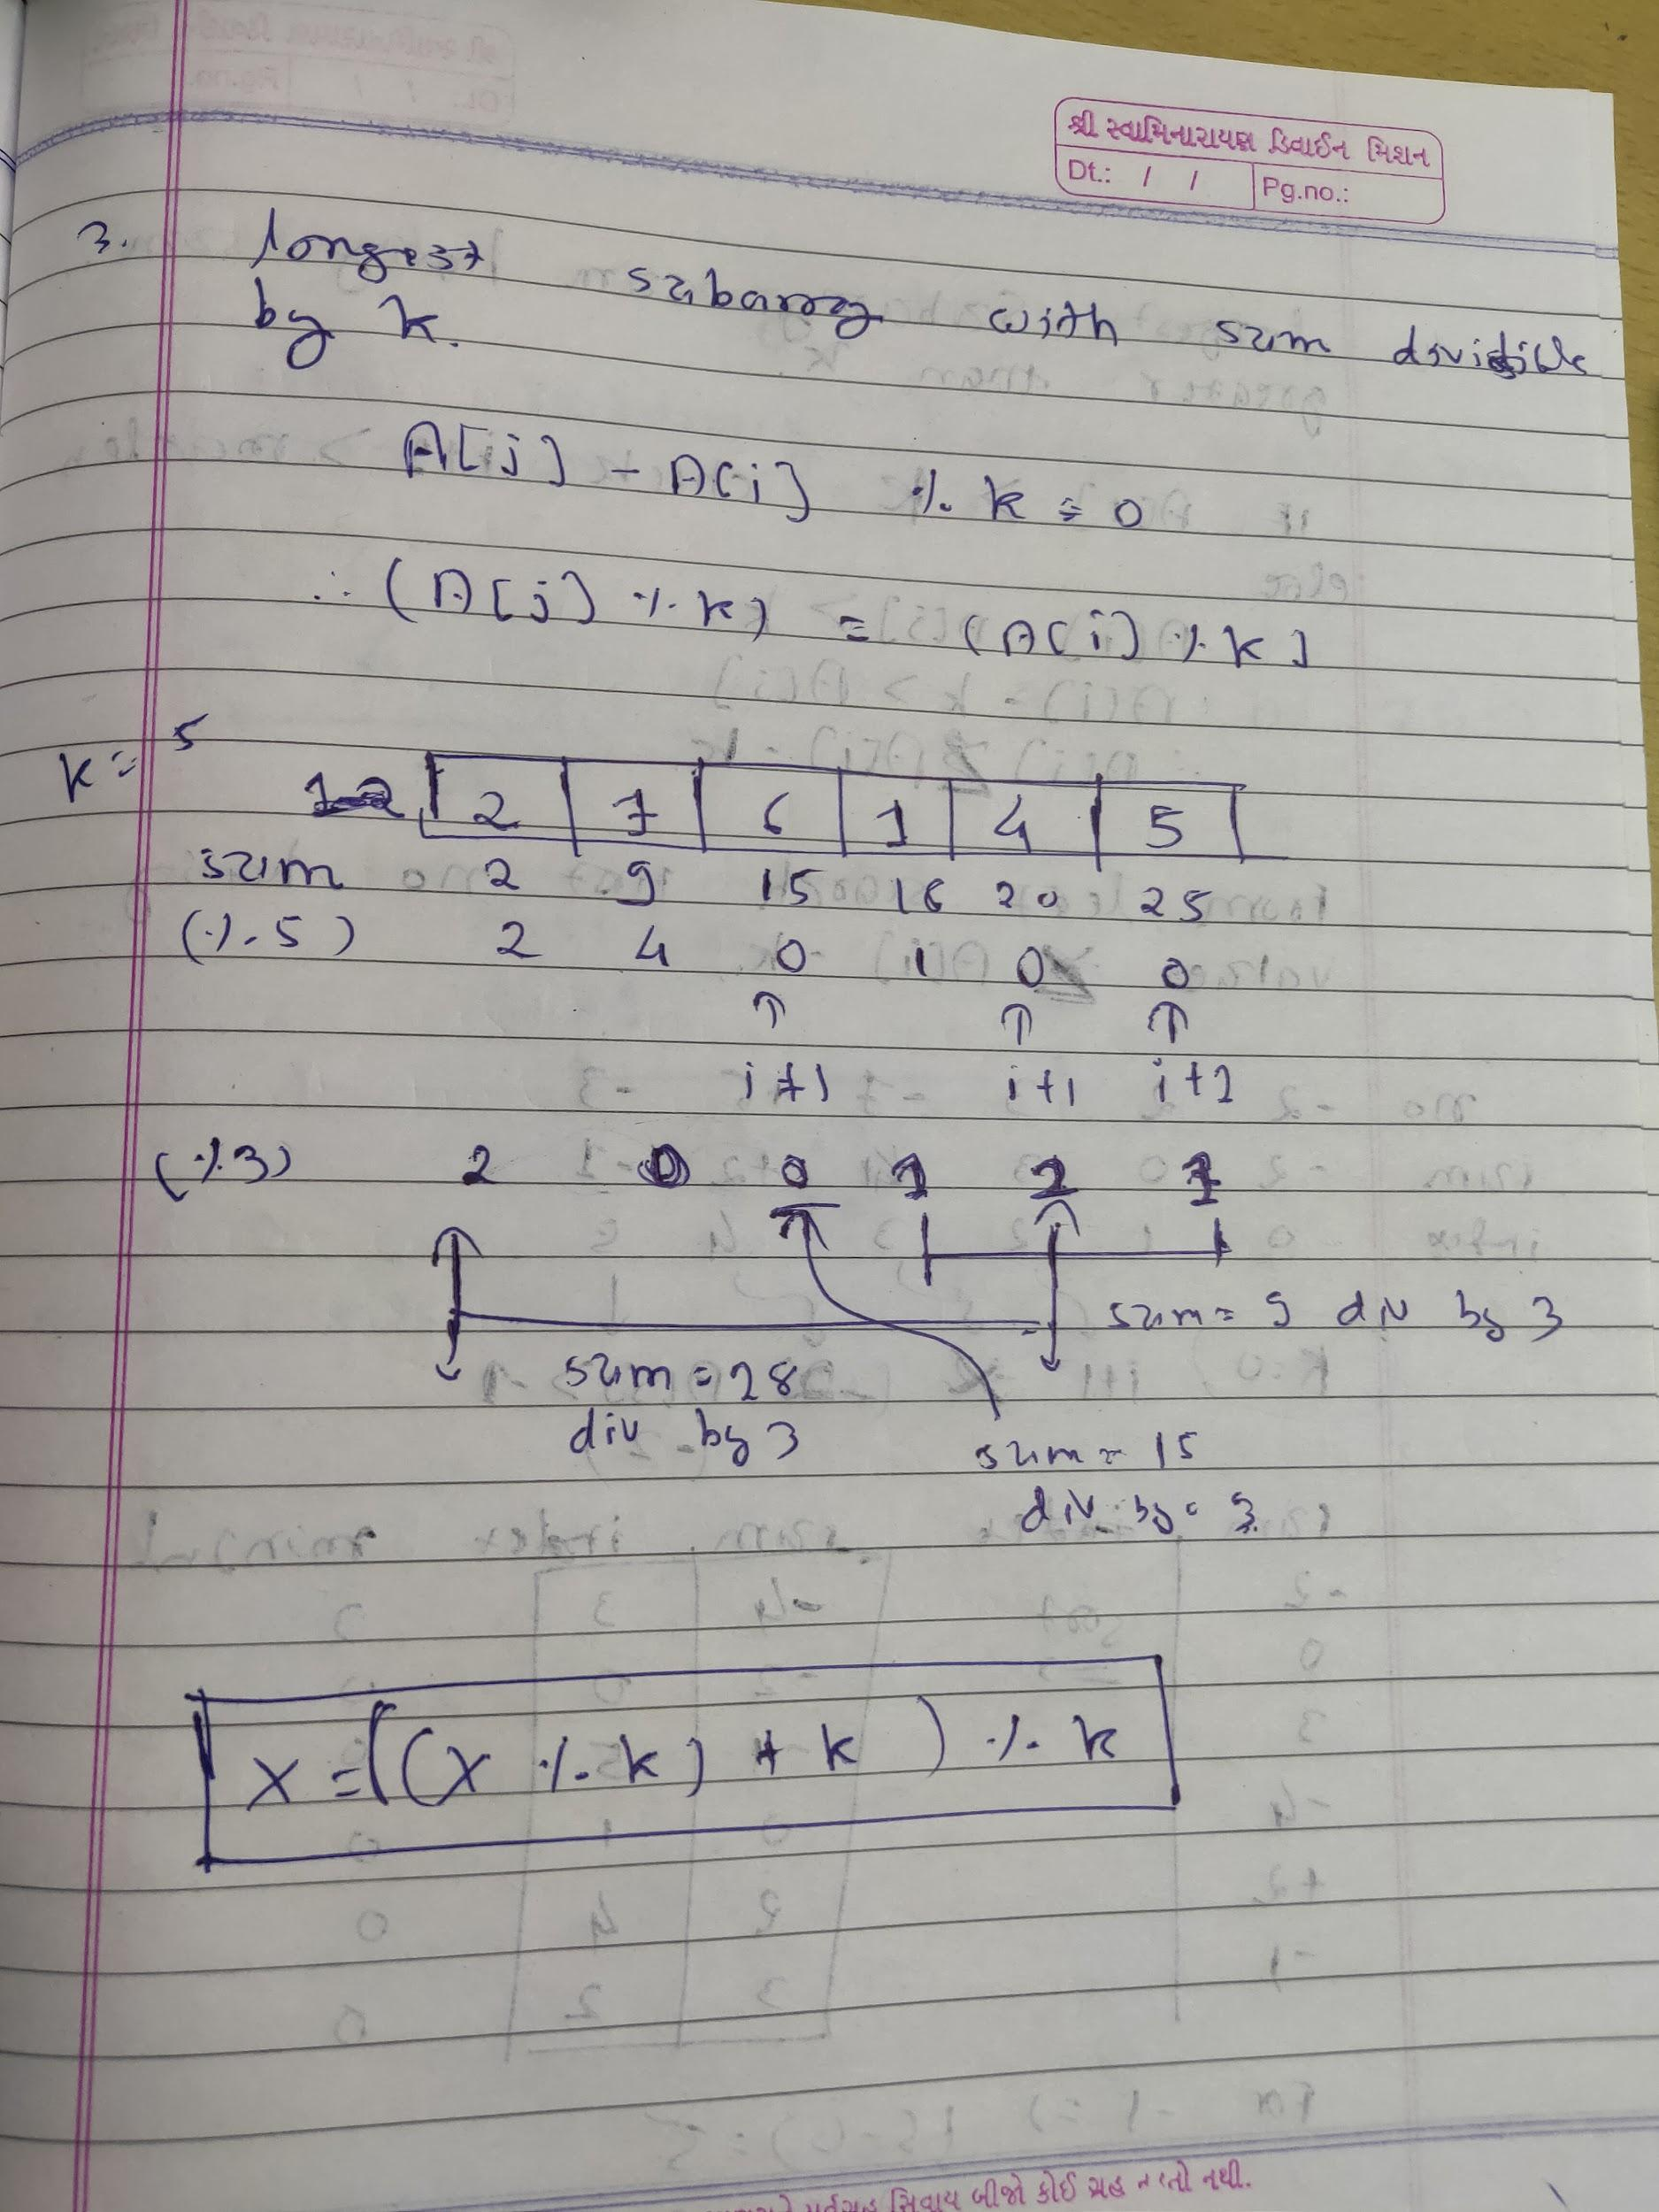 શ્રી સ્વામિનારાયણ ડિવાઈન મિશન
Dt.: / / Pg.no.:
3. longest subarray with sum divisible
by k.
A[j] - A[i] % k = 0
∴ (A[j] % k) = (A[i] % k)
k = 5
2 7 6 1 4 5
sum 2 9 15 16 20 25
(% 5) 2 4 0 1 0 0
↑ ↑ ↑
i+1 i+1 i+1
(% 3) 2 0 0 1 2 1
sum = 9 div by 3
sum = 28
div by 3
sum = 15
div by 3
x = ((x % k) + k) % k
સિવાય બીજો કોઈ ગ્રહ નડતો નથી.